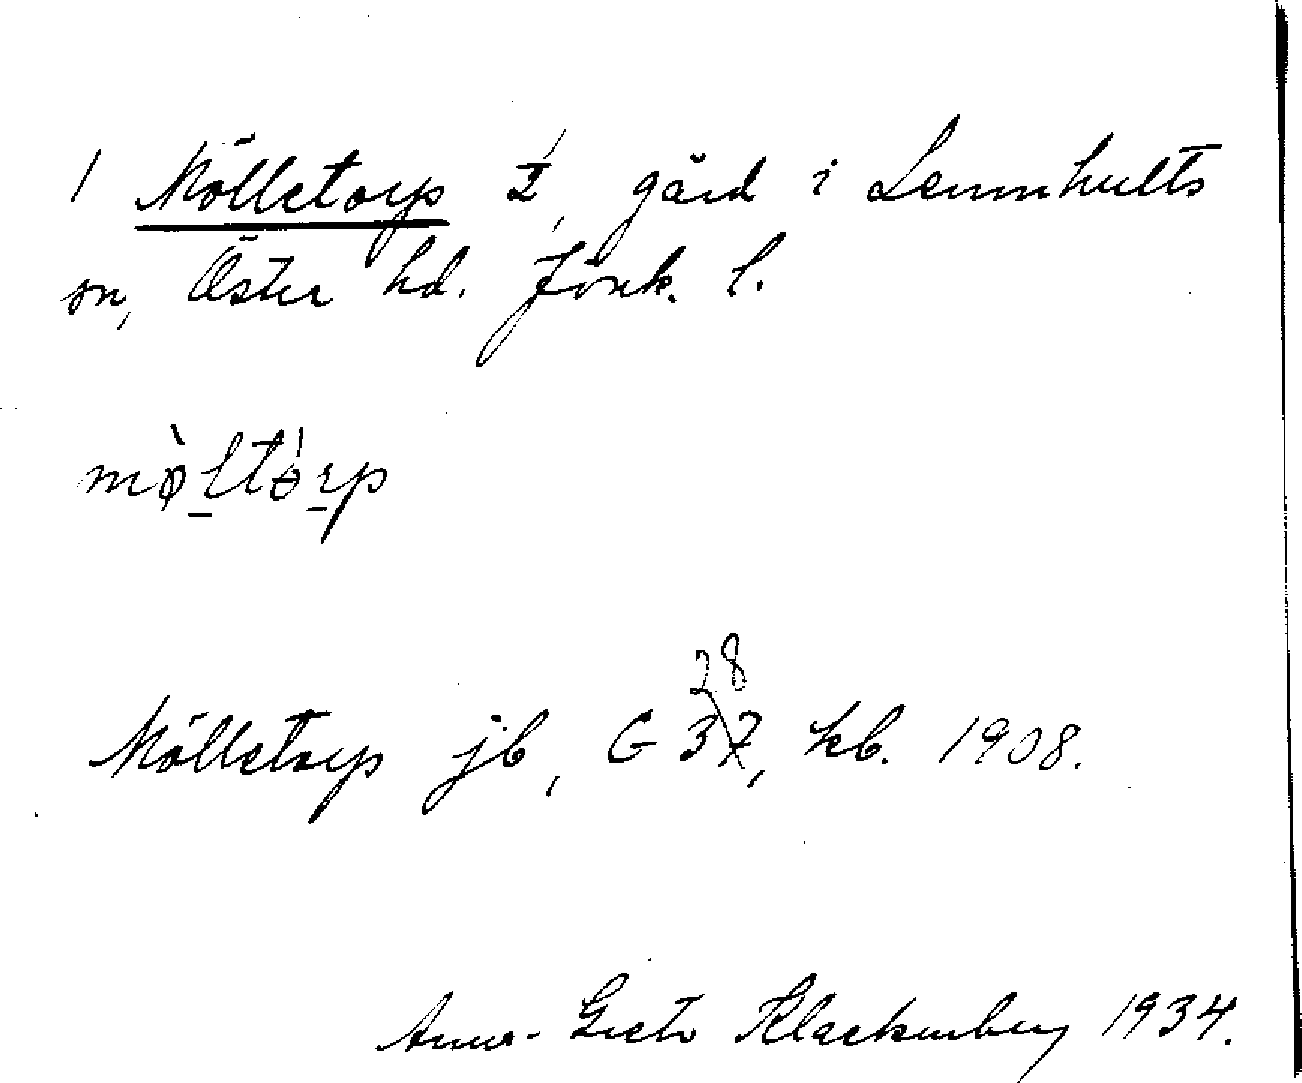 1 Mölletorp ½, gård i Lemnhults
sn, Östra hd. Jönk. l.
mø̀ltórp
28
Mölletorp jb, G 37, kb. 1908.
Anna-Greta Klackenberg 1934.